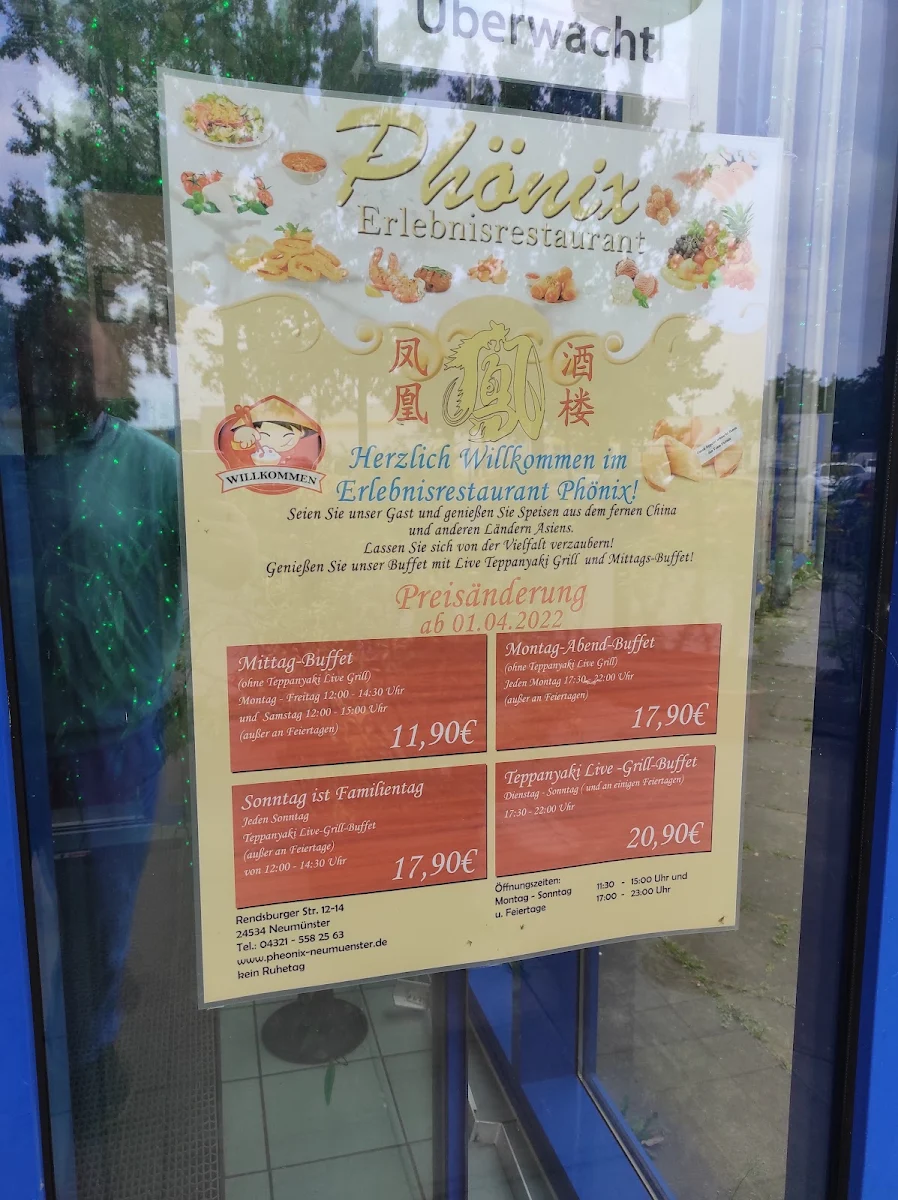 Überwacht
Phönix
Erlebnisrestaurant
凤凰
鳳
酒楼
WILLKOMMEN
Herzlich Willkommen im
Erlebnisrestaurant Phönix!
Seien Sie unser Gast und genießen Sie Speisen aus dem fernen China
und anderen Ländern Asiens.
Lassen Sie sich von der Vielfalt verzaubern!
Genießen Sie unser Buffet mit Live Teppanyaki Grill und Mittags-Buffet!
Preisänderung
ab 01.04.2022
Mittag-Buffet
(ohne Teppanyaki Live Grill)
Montag - Freitag 12:00 - 14:30 Uhr
und Samstag 12:00 - 15:00 Uhr
(außer an Feiertagen)
11,90€
Montag-Abend-Buffet
(ohne Teppanyaki Live Grill)
Jeden Montag 17:30 - 22:00 Uhr
(außer an Feiertagen)
17,90€
Sonntag ist Familientag
Jeden Sonntag
Teppanyaki Live-Grill-Buffet
(außer an Feiertage)
von 12:00 - 14:30 Uhr
17,90€
Teppanyaki Live -Grill-Buffet
Dienstag - Sonntag ( und an einigen Feiertagen)
17:30 - 22:00 Uhr
20,90€
Rendsburger Str. 12-14
24534 Neumünster
Tel.: 04321 - 558 25 63
www.pheonix-neumuenster.de
kein Ruhetag
Öffnungszeiten:
Montag - Sonntag
u. Feiertage
11:30 - 15:00 Uhr und
17:00 - 23:00 Uhr